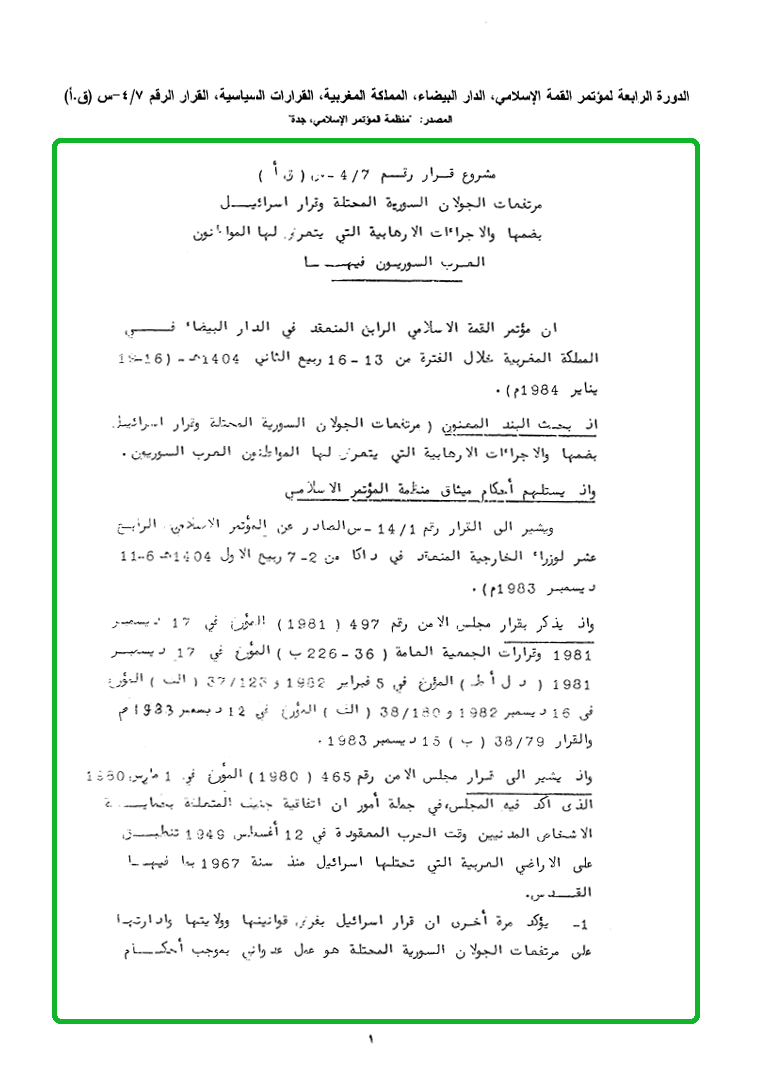 الدورة الرابعة لمؤتمر القمة الإسلامي، الدار البيضاء، المملكة المغربية، القرارات السياسية، القرار الرقم ٤/٧-س (ق.أ)
المصدر: "منظمة المؤتمر الإسلامي، جدة"
مشروع قرار رقم 4/7 -س ( ق أ )
مرتفعات الجولان السورية المحتلة وقرار اسرائيل
بضمها والاجراءات الارهابية التي يتعرض لها المواطنون
العرب السوريون فيها
ان مؤتمر القمة الاسلامي الرابع المنعقد في الدار البيضاء في
المملكة المغربية خلال الفترة من 13 - 16 ربيع الثاني 1404هـ - (16-19
يناير 1984م) .
اذ بحث البند المعنون ( مرتفعات الجولان السورية المحتلة وقرار اسرائيل
بضمها والاجراءات الارهابية التي يتعرض لها المواطنون العرب السوريون .
واذ يستلهم أحكام ميثاق منظمة المؤتمر الاسلامي
ويشير الى القرار رقم 14/1 -س الصادر عن المؤتمر الاسلامي الرابع
عشر لوزراء الخارجية المنعقد في داكا من 2- 7 ربيع الاول 1404هـ 6-11
ديسمبر 1983م) .
واذ يذكر بقرار مجلس الامن رقم 497 ( 1981 ) المؤرخ في 17 ديسمبر
1981 وقرارات الجمعية العامة ( 36 - 226 ب ) المؤرخ في 17 ديسمبر
1981 ( د ل أ ط ) المؤرخ في 5 فبراير 1982 و 37/123 ( الف ) المؤرخ
في 16 ديسمبر 1982 و 38/180 ( الف ) المؤرخ في 12 ديسمبر 1983م
والقرار 38/79 ( ب ) 15 ديسمبر 1983 .
واذ يشير الى قرار مجلس الامن رقم 465 ( 1980 ) المؤرخ في 1 مارس 1980
الذى اكد فيه المجلس، في جملة أمور ان اتفاقية جنيف المتعلقة بحماية
الاشخاص المدنيين وقت الحرب المعقودة في 12 أغسطس 1949 تنطبق
على الاراضي العربية التي تحتلها اسرائيل منذ سنة 1967 بما فيها
القدس.
1- يؤكد مرة أخرى ان قرار اسرائيل بفرض قوانينها وولايتها وادارتها
على مرتفعات الجولان السورية المحتلة هو عمل عدواني بموجب أحكام
١